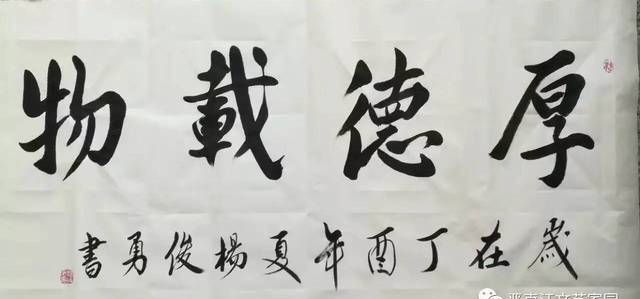 厚德載物
歲在丁酉年夏楊俊勇書